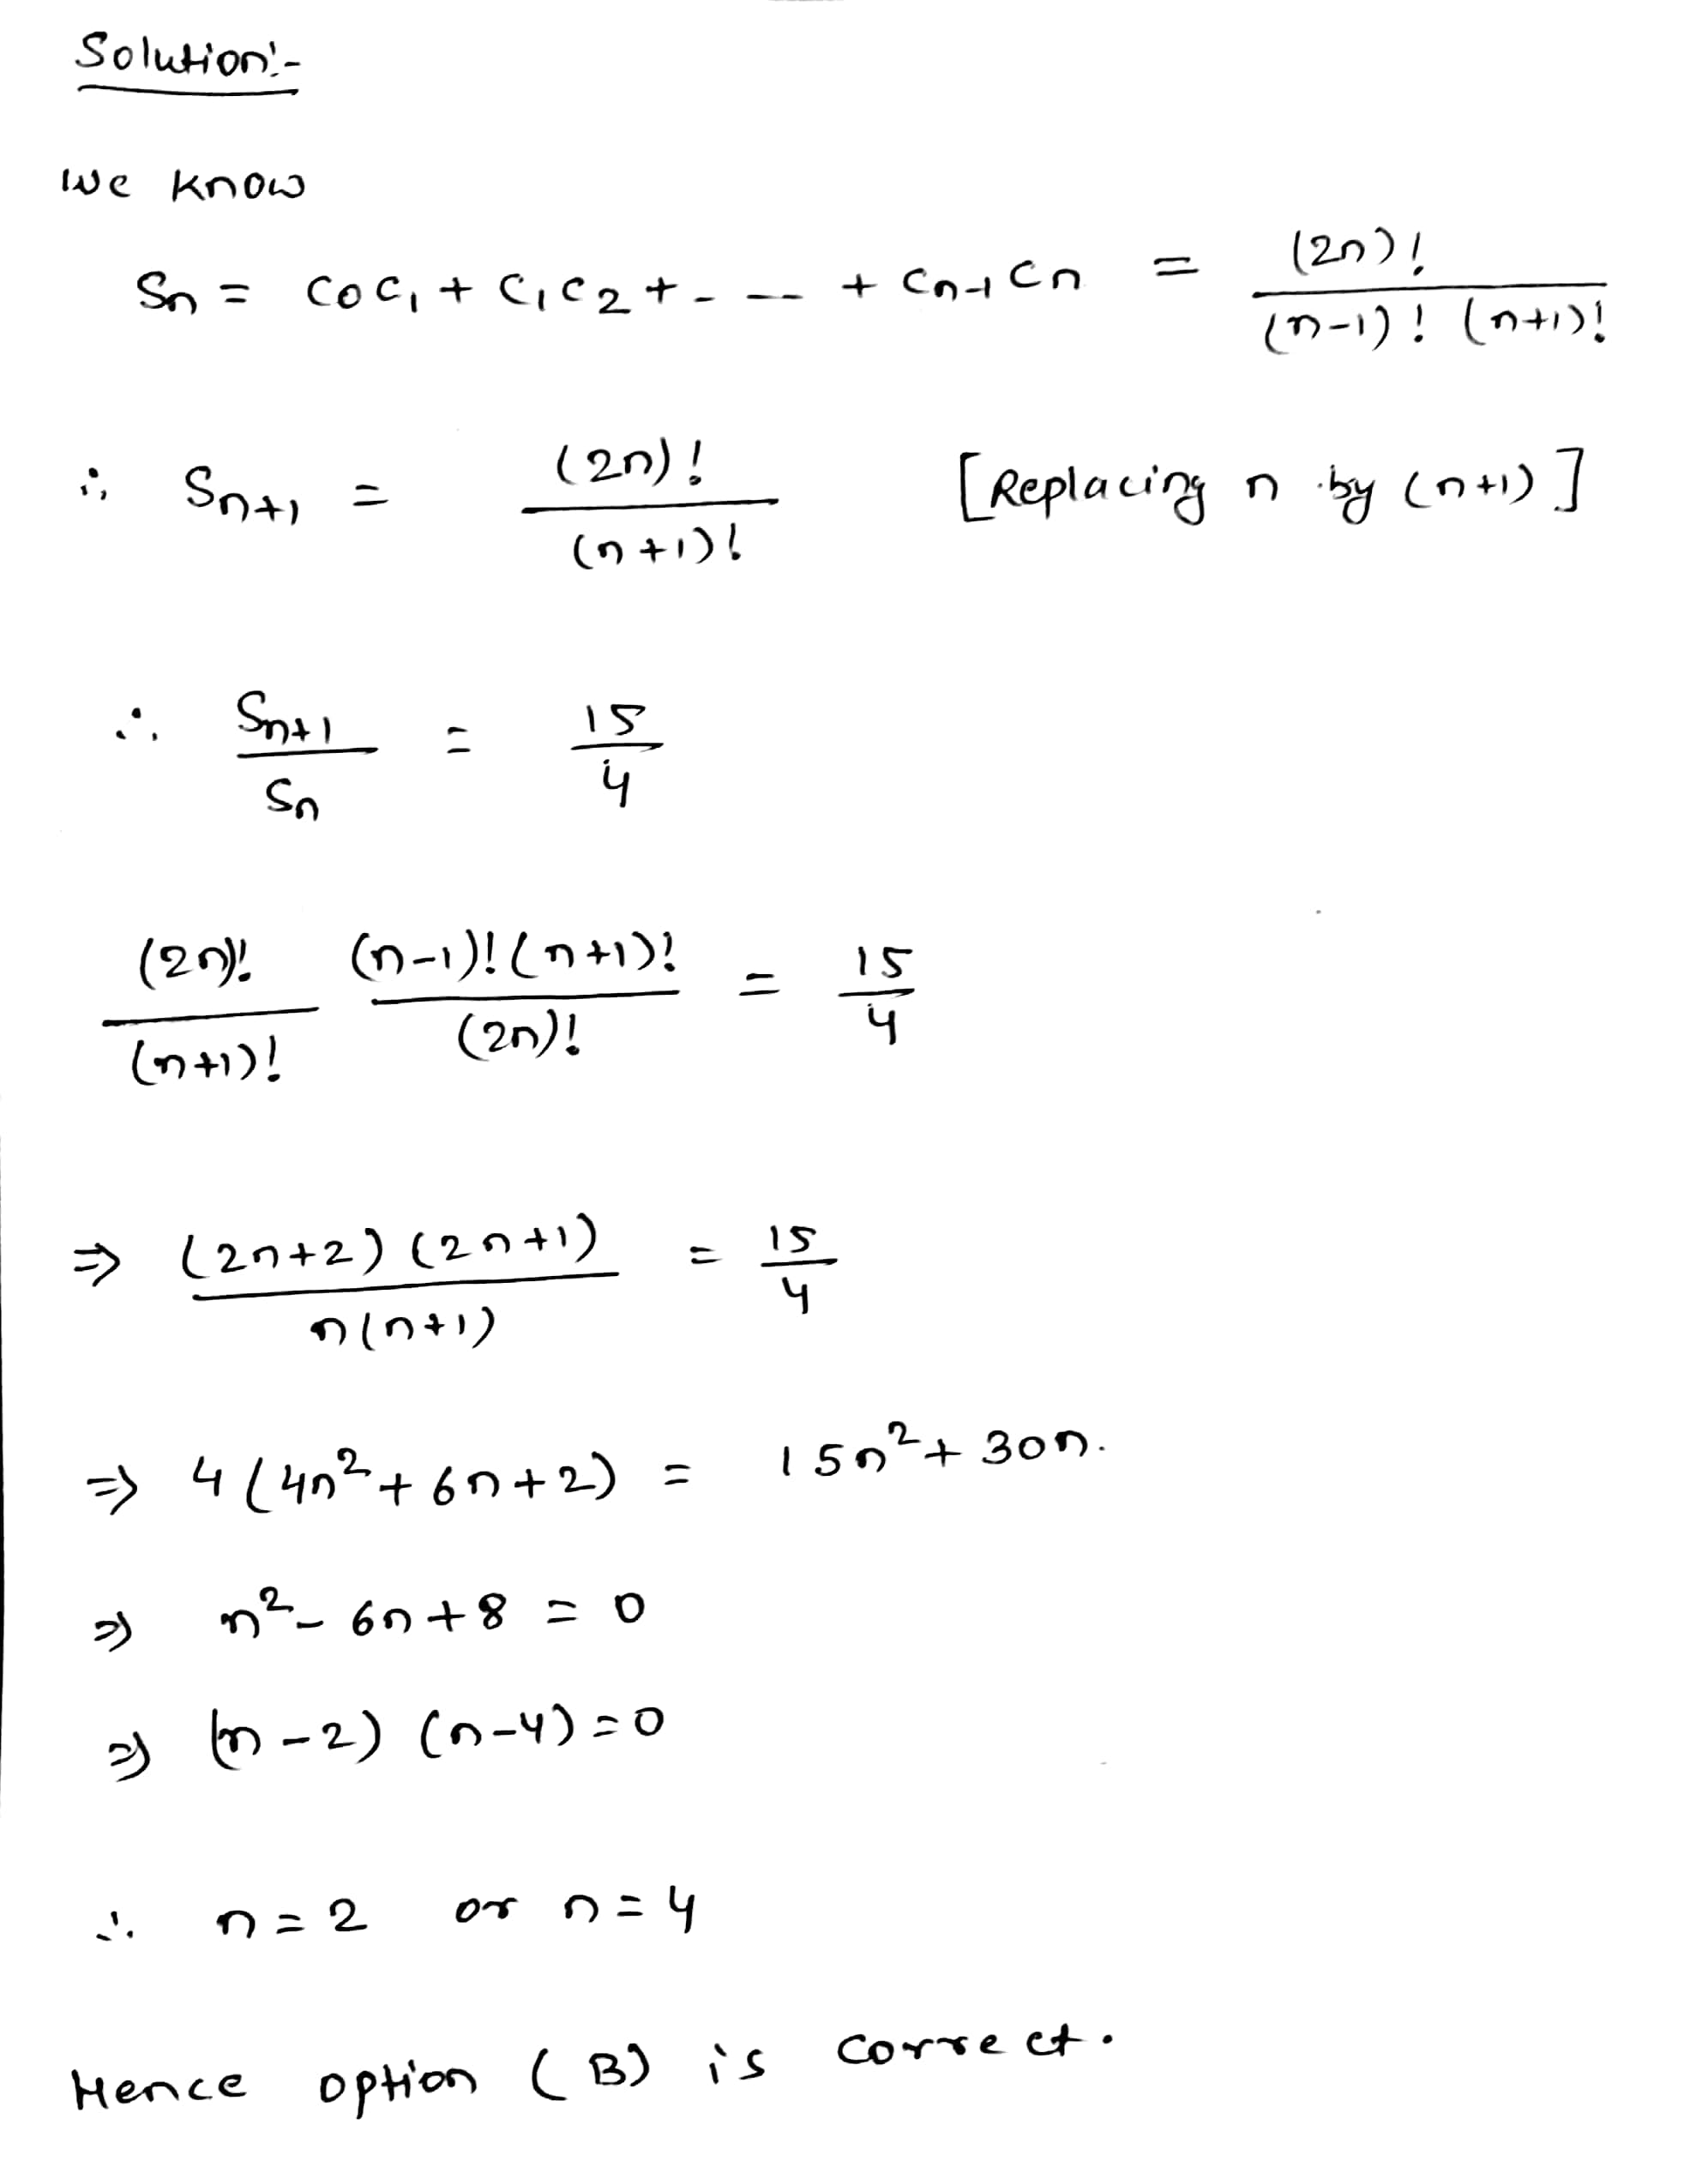 Solution:-
We know
Sn = C0C1 + C1C2 + - -- + Cn-1 Cn = (2n)! / (n-1)! (n+1)!
∴ Sn+1 = (2n)! / (n+1)! [Replacing n by (n+1)]
∴ Sn+1 / Sn = 15 / 4
(2n)! / (n+1)! (n-1)! (n+1)! / (2n)! = 15 / 4
⇒ (2n+2) (2n+1) / n(n+1) = 15 / 4
⇒ 4(4n² + 6n + 2) = 15n² + 30n.
⇒ n² - 6n + 8 = 0
⇒ (n - 2) (n - 4) = 0
∴ n = 2 or n = 4
Hence option (B) is correct.